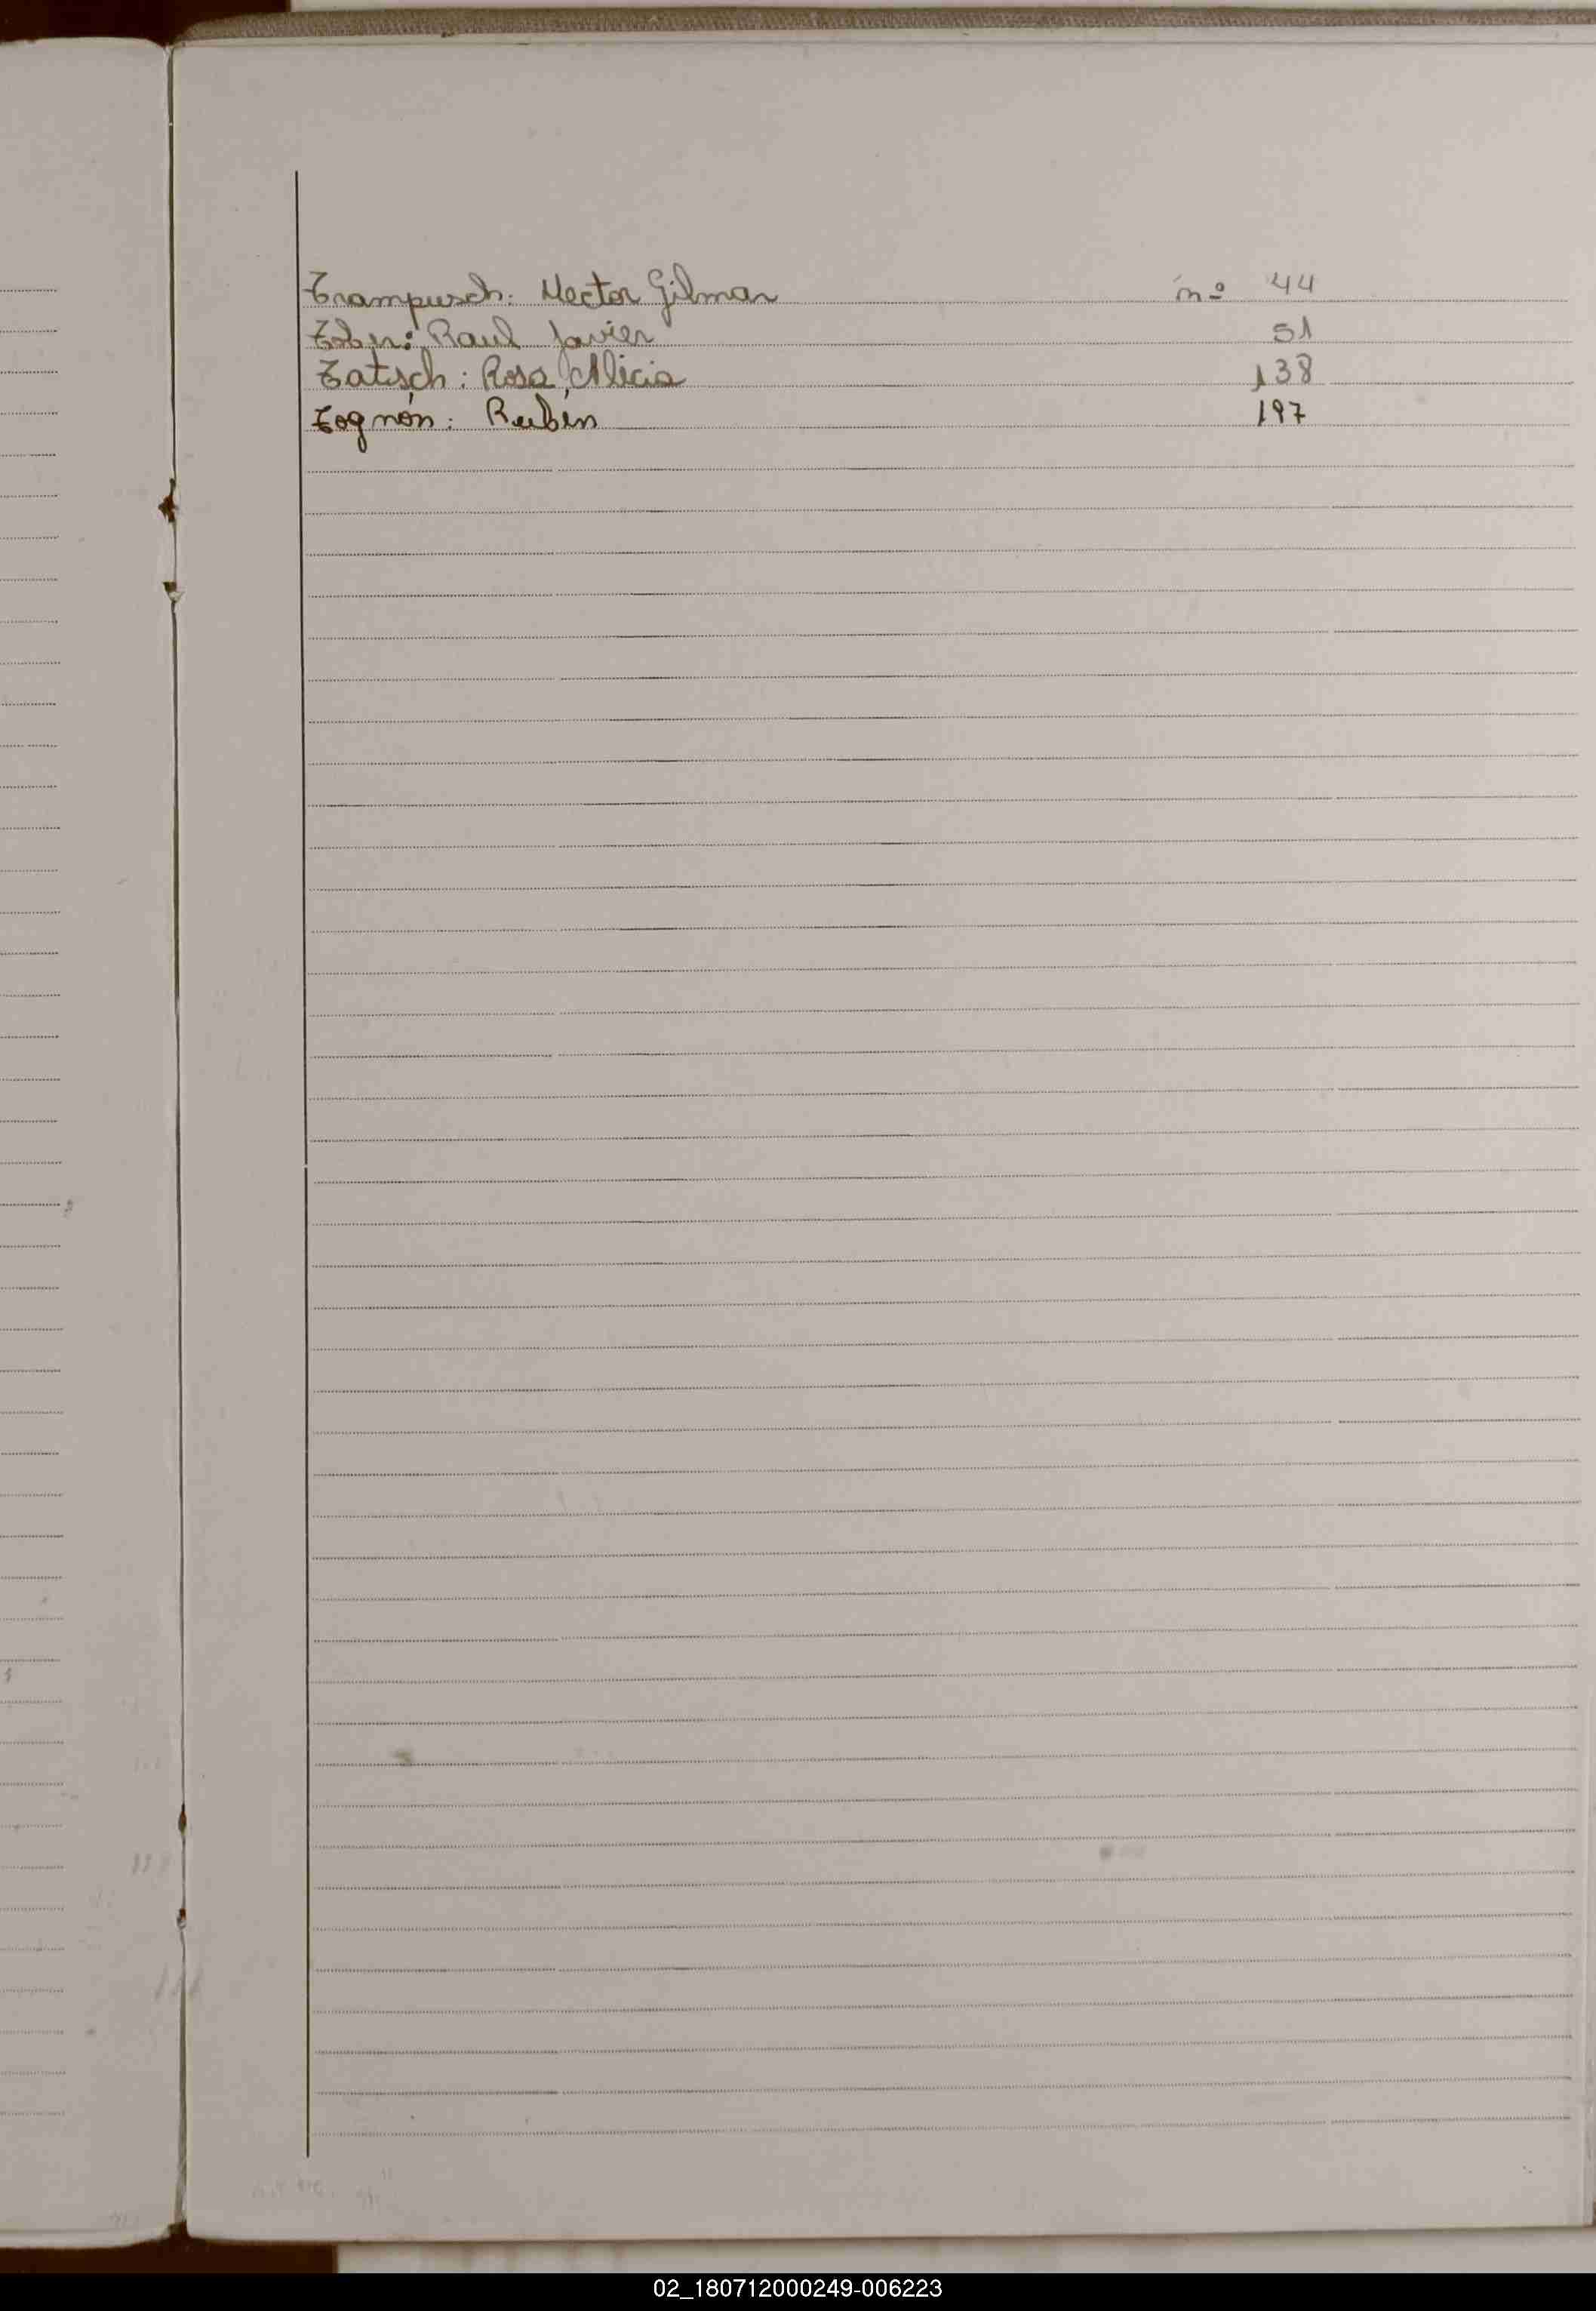 Trampusch: Hector Gilmar nº 44
Tober: Raul Javier 51
Tatsch: Rosa Alicia 138
Tognón: Rubén 197
02_180712000249-006223